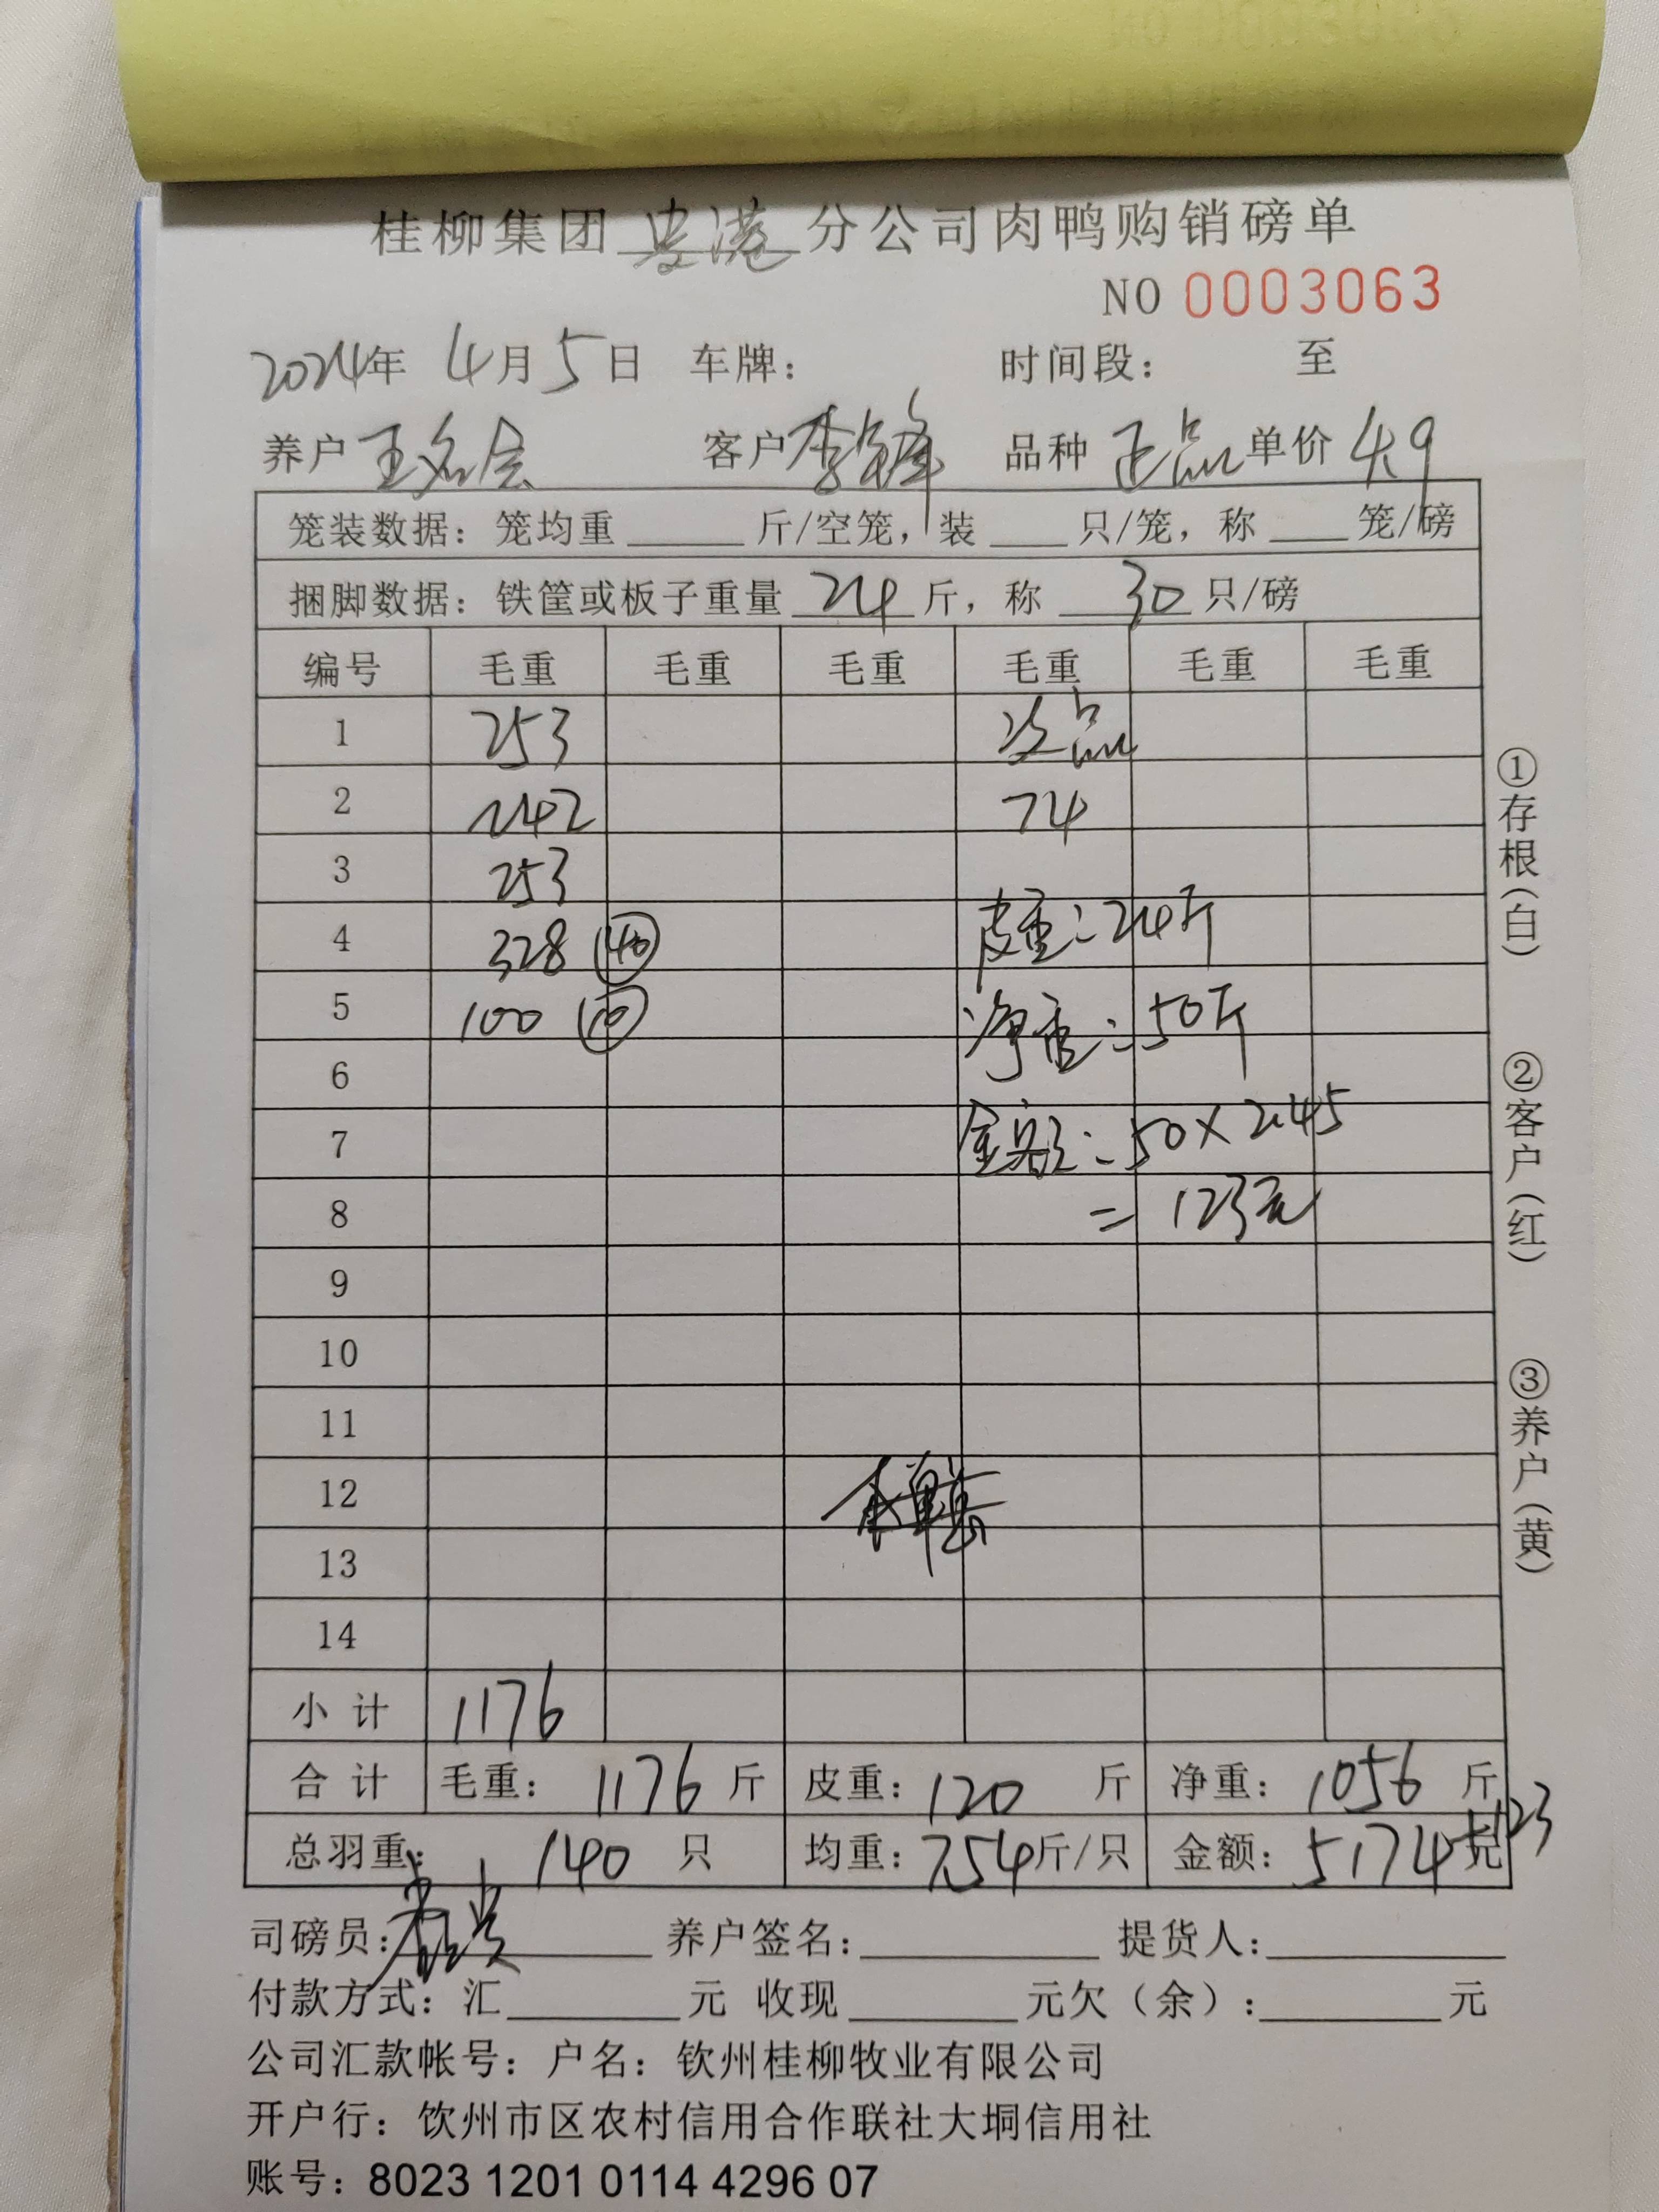 桂柳集团 贵港 分公司肉鸭购销磅单
NO 0003063
2024年 4月5日 车牌： 时间段： 至
养户 王名会 客户 李锋 品种 正品 单价 4.9
笼装数据：笼均重 斤/空笼，装 只/笼，称 笼/磅
捆脚数据：铁筐或板子重量 24 斤，称 30 只/磅
编号 毛重 毛重 毛重 毛重 毛重 毛重
1 253 次品
2 242 74
3 253
4 328 40 皮重：24斤
5 100 10 净重：50斤
6
7 金额：50×2.45
8 =123元
9
10
11
12
13
14
小计 1176
合计 毛重：1176斤 皮重：120斤 净重：1056斤
总羽重：140只 均重：7.54斤/只 金额：5174元+123
司磅员： 养户签名： 提货人：
付款方式：汇 元 收现 元欠（余）： 元
公司汇款帐号：户名：钦州桂柳牧业有限公司
开户行：饮州市区农村信用合作联社大垌信用社
账号：8023 1201 0114 4296 07
①存根（白）
②客户（红）
③养户（黄）